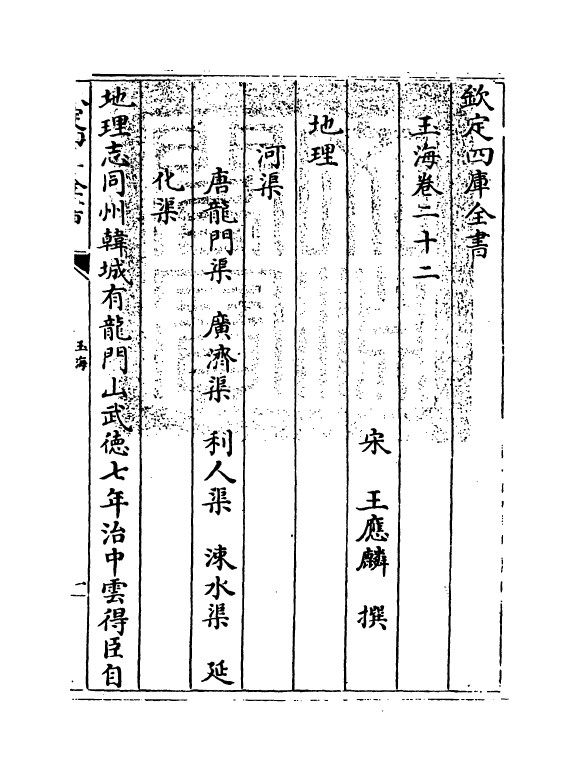 欽定四庫全書
玉海卷二十二
宋 王應麟 撰
地理
河渠
唐龍門渠 廣濟渠 利人渠 涑水渠 延
化渠
地理志同州韓城有龍門山武德七年治中雲得臣自
玉海